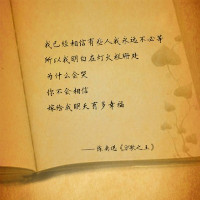 我已经相信有些人我永远不必等
所以我明白在灯火阑珊处
为什么会哭
你不会相信
嫁给我明天有多幸福
——陈奕迅《分歌之王》